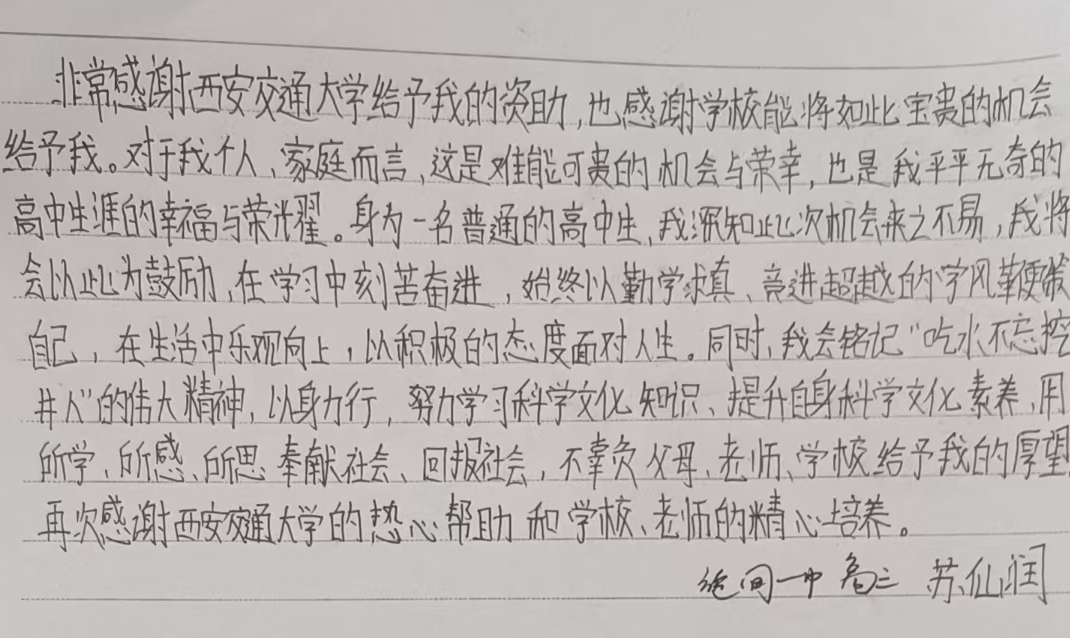 非常感谢西安交通大学给予我的资助,也感谢学校能将如此宝贵的机会
给予我。对于我个人、家庭而言,这是难能可贵的机会与荣幸,也是我平平无奇的
高中生涯的幸福与荣光耀。身为一名普通的高中生,我深知此次机会来之不易,我将
会以此为鼓励,在学习中刻苦奋进,始终以勤学求真、竞进超越的学风鞭策
自己,在生活中乐观向上,以积极的态度面对人生。同时,我会铭记“吃水不忘挖
井人”的伟大精神,以身力行,努力学习科学文化知识、提升自身科学文化素养,用
所学、所感、所思奉献社会、回报社会,不辜负父母、老师、学校给予我的厚望
再次感谢西安交通大学的热心帮助和学校、老师的精心培养。
一中 高三 苏仙润